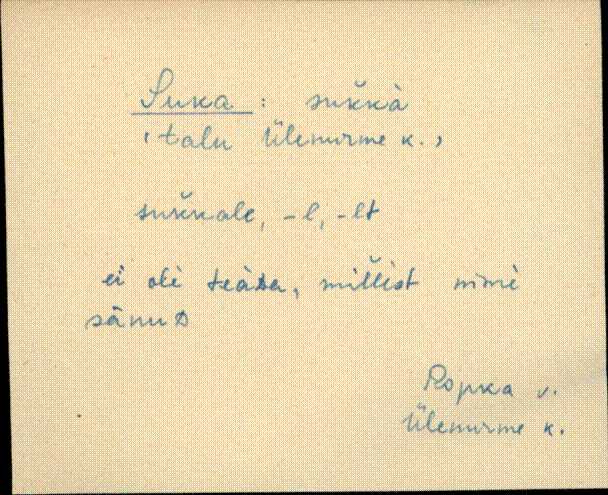 Suka : suk̆kà
‘talu Ülenurme k.’
suk̆kale, -l, -lt
ei ole teàᴅa, mil̆list nimè
sànuᴅ
Ropka v.
Ülenurme k.